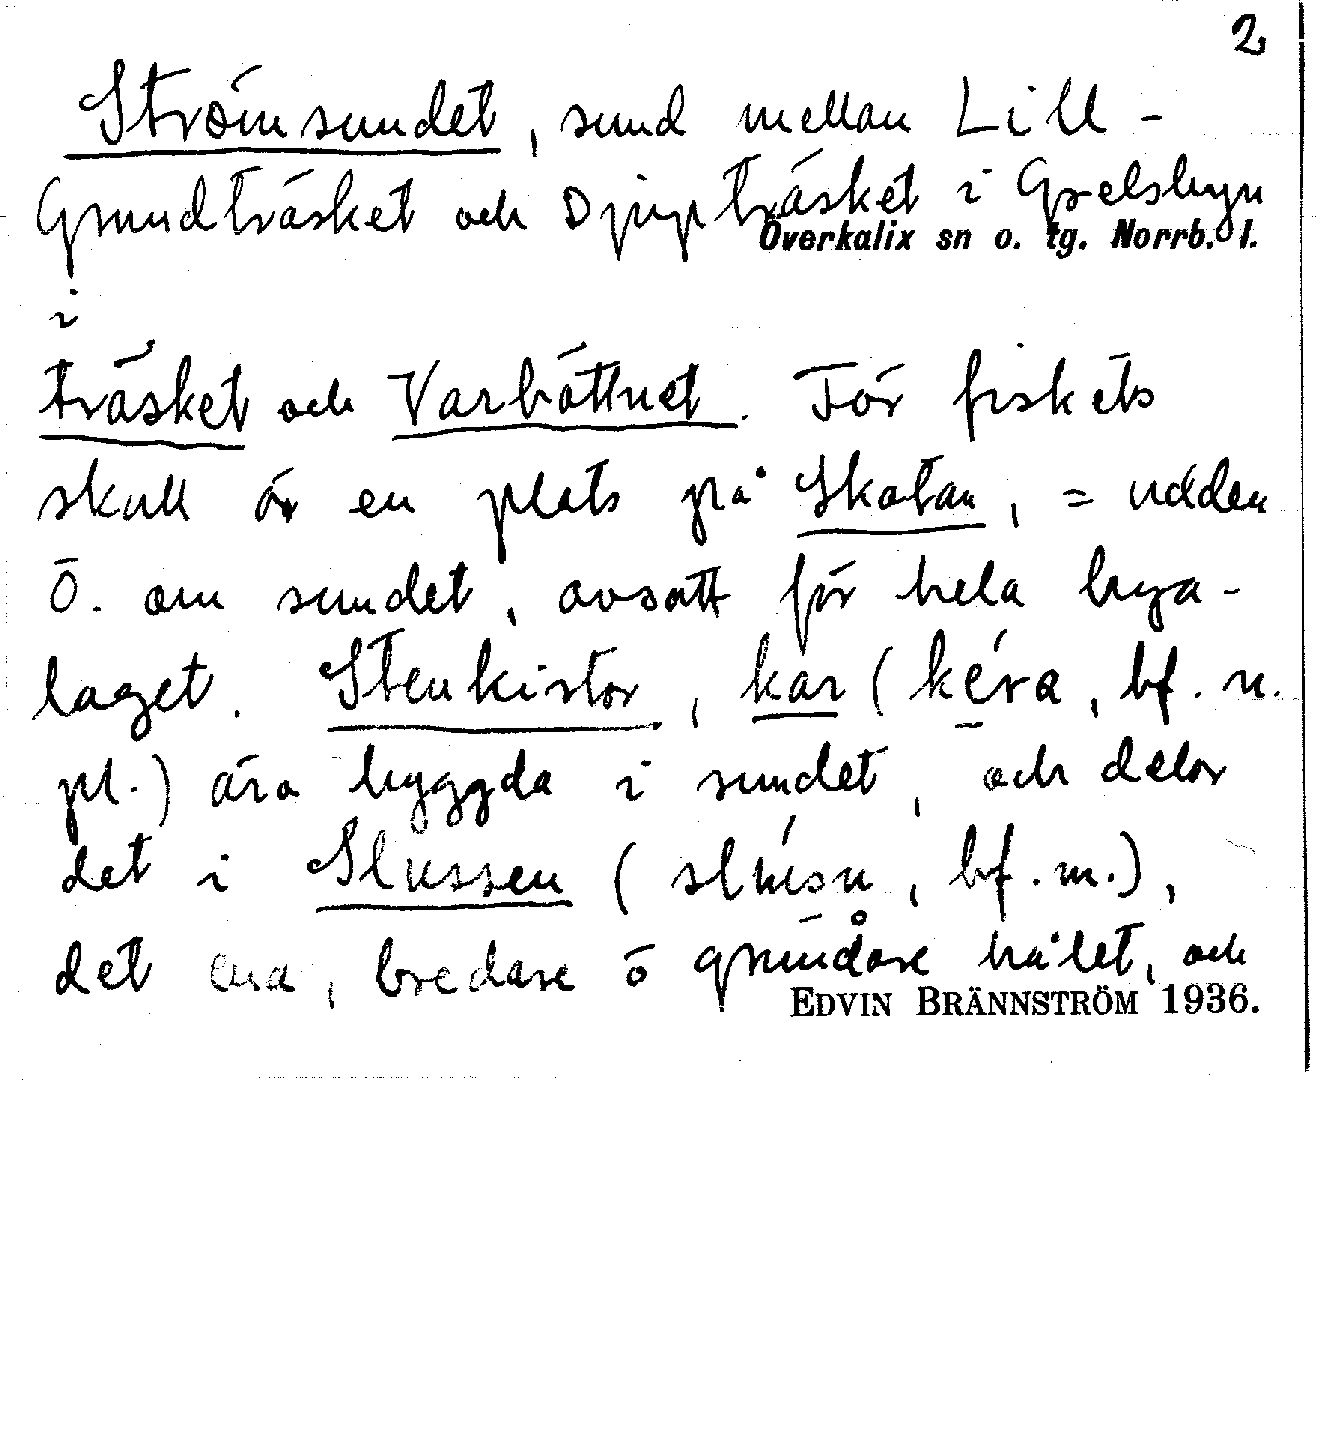 2
Strömsundet, sund mellan Lill-
Grundträsket och Djupträsket i Grelsbyn
Överkalix sn o. tg. Norrb. l.
i
träsket och Varbåttnet. För fiskets
skull är en plats på Skatan, = udden
Ö. om sundet, avsatt för hela bya-
laget. Stenkistor, kar (kéra, bf. n.
pl.) äro byggda i sundet, och delar
det i Slussen (slúsn, bf. m.),
det ena, bredare o grundare hålet, och
EDVIN BRÄNNSTRÖM 1936.